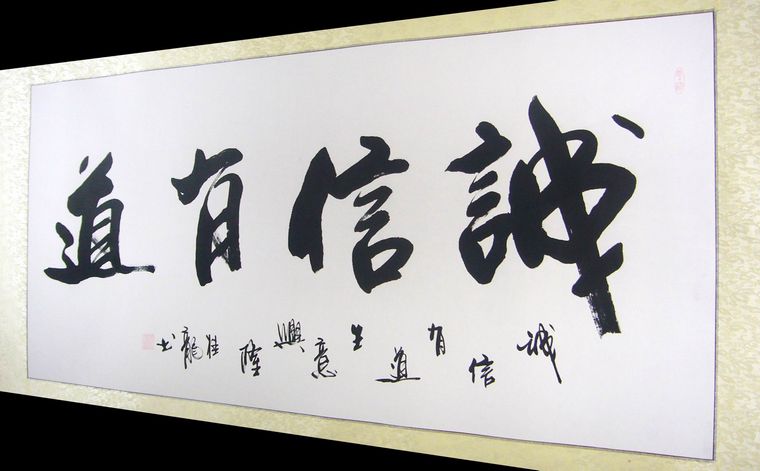 誠信有道
誠信有道生意興隆 龍书